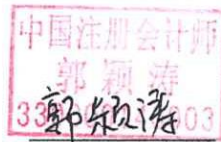 中国注册会计师
郭颖涛
33
003
郭颖涛